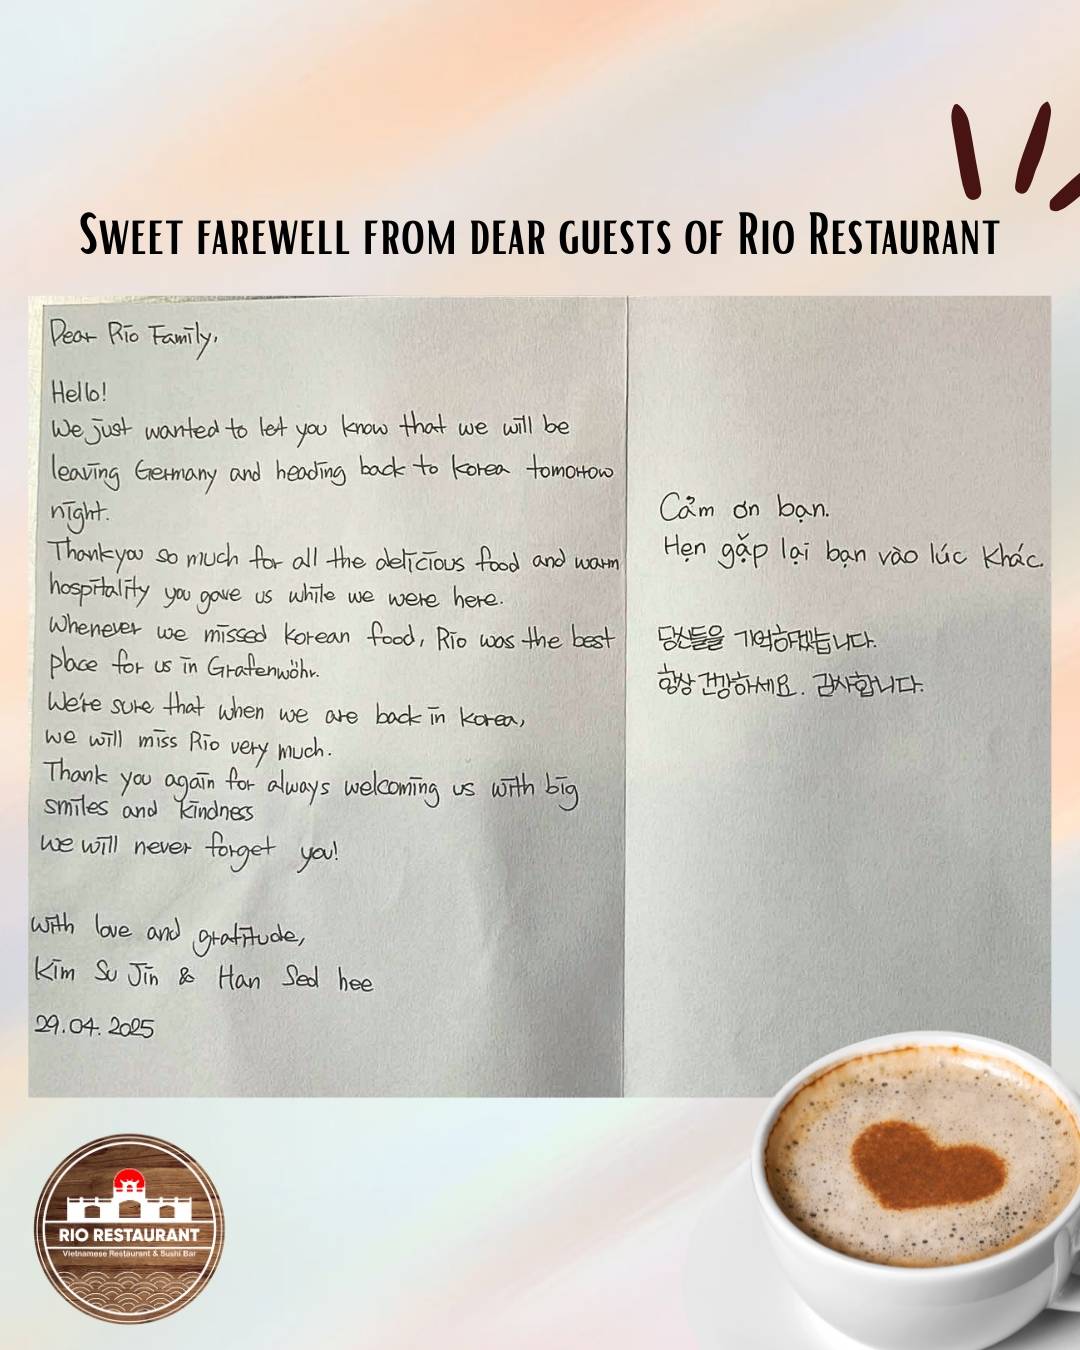 Sweet farewell from dear guests of Rio Restaurant
Dear Rio Family,
Hello!
We just wanted to let you know that we will be
leaving Germany and heading back to Korea tomorrow
night.
Thankyou so much for all the delicious food and warm
hospitality you gave us while we were here.
Whenever we missed korean food, Rio was the best
place for us in Grafenwöhr.
We're sure that when we are back in korea,
we will miss Rio very much.
Thank you again for always welcoming us with big
smiles and kindness
we will never forget you!
with love and gratitude,
Kim Su Jin & Han Seo hee
29.04.2025
Cảm ơn bạn.
Hẹn gặp lại bạn vào lúc khác.
당신들을 기억하겠습니다.
항상 건강하세요. 감사합니다.
RIO RESTAURANT
Vietnamese Restaurant & Sushi Bar